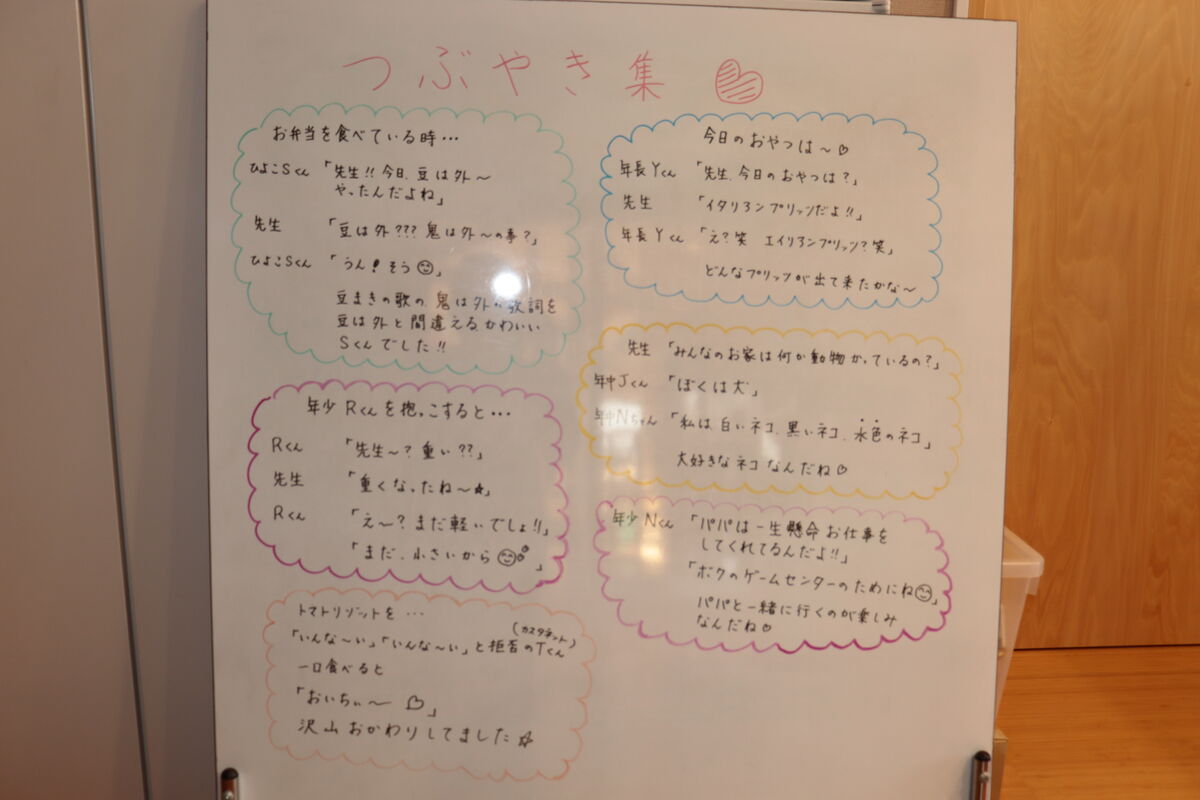 つぶやき集
お弁当を食べている時…
ひよこSくん 「先生!! 今日、豆は外〜
やったんだよね」
先生 「豆は外??? 鬼は外〜の事?」
ひよこSくん 「うん! そう😊」
豆まきの歌の、鬼は外の歌詞を
豆は外と間違える、かわいい
Sくんでした!!
年少Rくんを抱っこすると…
Rくん 「先生〜? 重い??」
先生 「重くなったね〜★」
Rくん 「え〜? まだ軽いでしょ!!」
「まだ、小さいから😊」
トマトリゾットを…
「いんな〜い」「いんな〜い」と拒否の(カスタネット)Tくん
一口食べると
「おいちぃ〜♡」
沢山おかわりしてました☆
今日のおやつは〜♡
年長Yくん 「先生、今日のおやつは?」
先生 「イタリアンプリッツだよ!!」
年長Yくん 「え?笑 エイリアンプリッツ?笑」
どんなプリッツが出て来たかな〜
先生 「みんなのお家は何か動物かっているの?」
年中Jくん 「ぼくは犬」
年中Nちゃん 「私は白いネコ、黒いネコ、水色のネコ」
大好きなネコなんだね♡
年少Nくん 「パパは一生懸命お仕事を
してくれてるんだよ!!」
「ボクのゲームセンターのためにね😊」
パパと一緒に行くのが楽しみ
なんだね♡